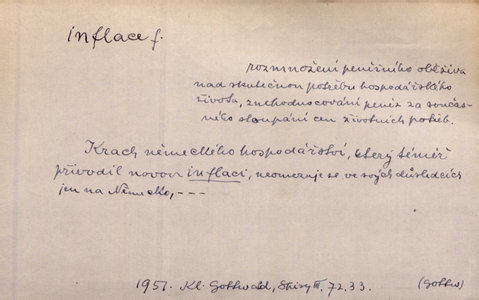 inflace f.
rozmnožení peněžního oběživa
nad skutečnou potřebu hospodářského
života, znehodnocování peněz za součas-
ného stoupání cen životních potřeb.
Krach německého hospodářství, který téměř
přivodil novou inflaci, neomezuje se ve svých důsledcích
jen na Německo, ---
1951. Kl. Gottwald, Spisy III. 72.33.
(Gottw)